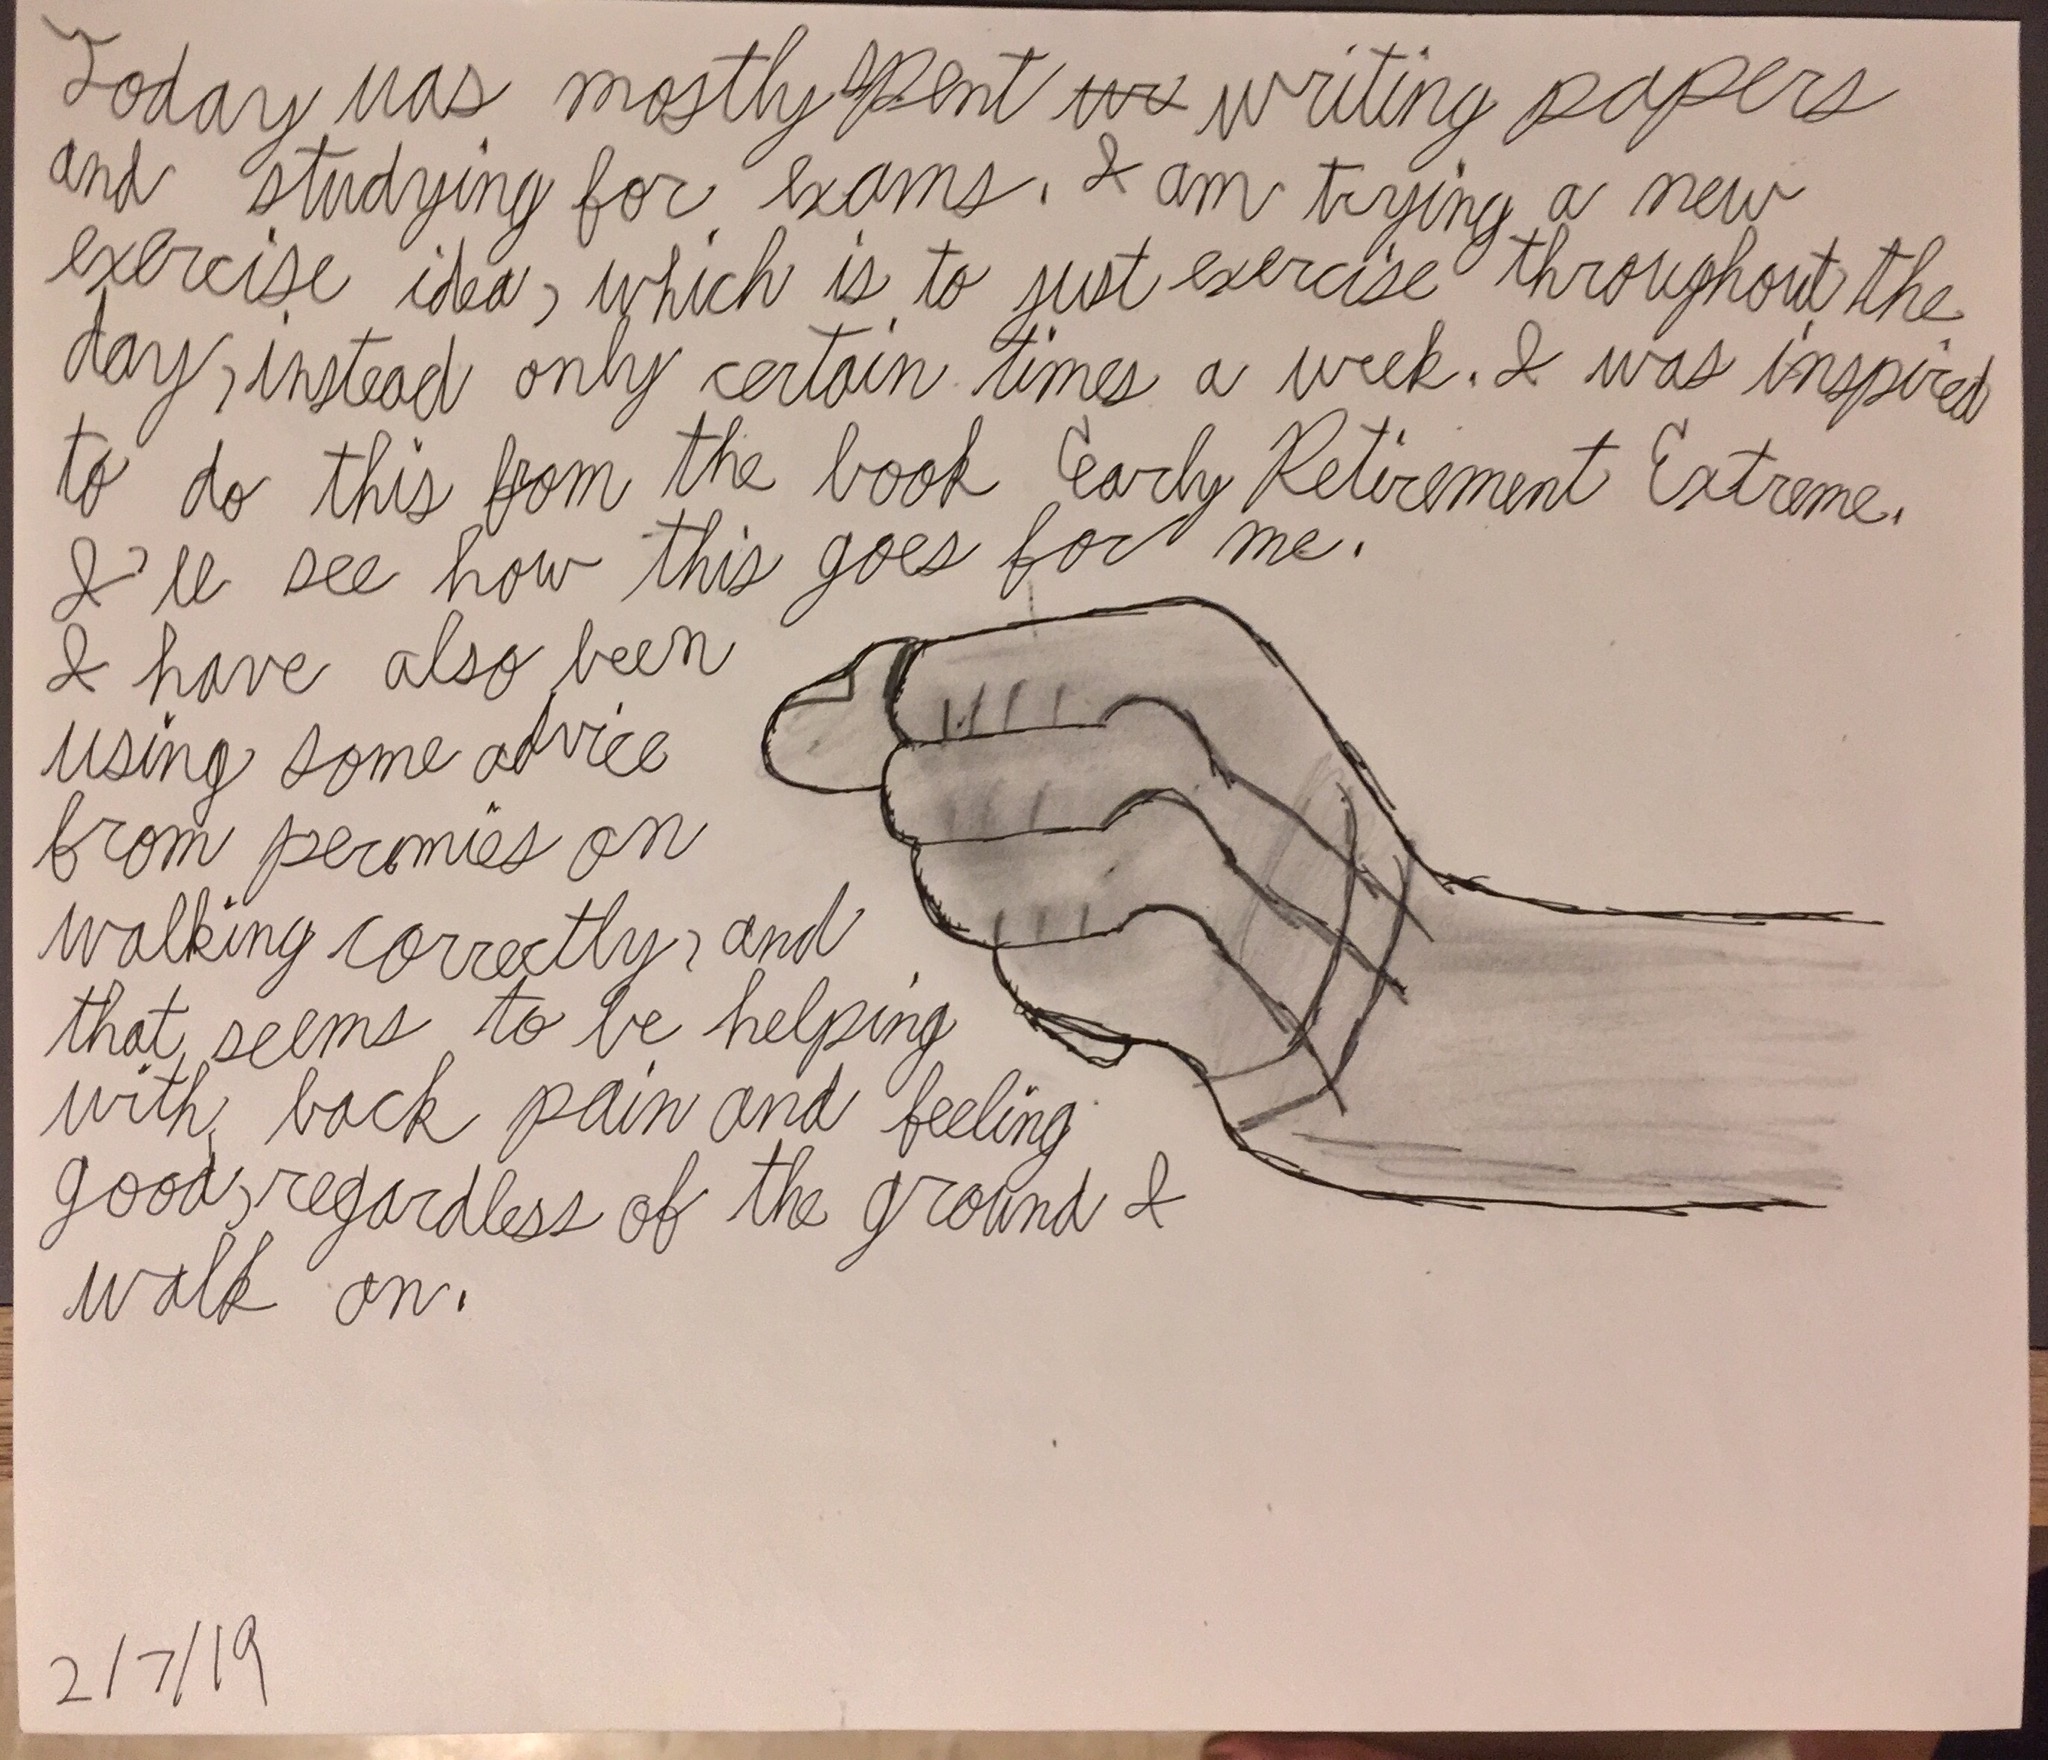 Today was mostly spent wri writing papers
and studying for exams. I am trying a new
exercise idea, which is to just exercise throughout the
day, instead only certain times a week. I was inspired
to do this from the book Early Retirement Extreme.
I'll see how this goes for me.
I have also been
using some advice
from permies on
walking correctly, and
that seems to be helping
with back pain and feeling
good, regardless of the ground I
walk on.
2/7/19